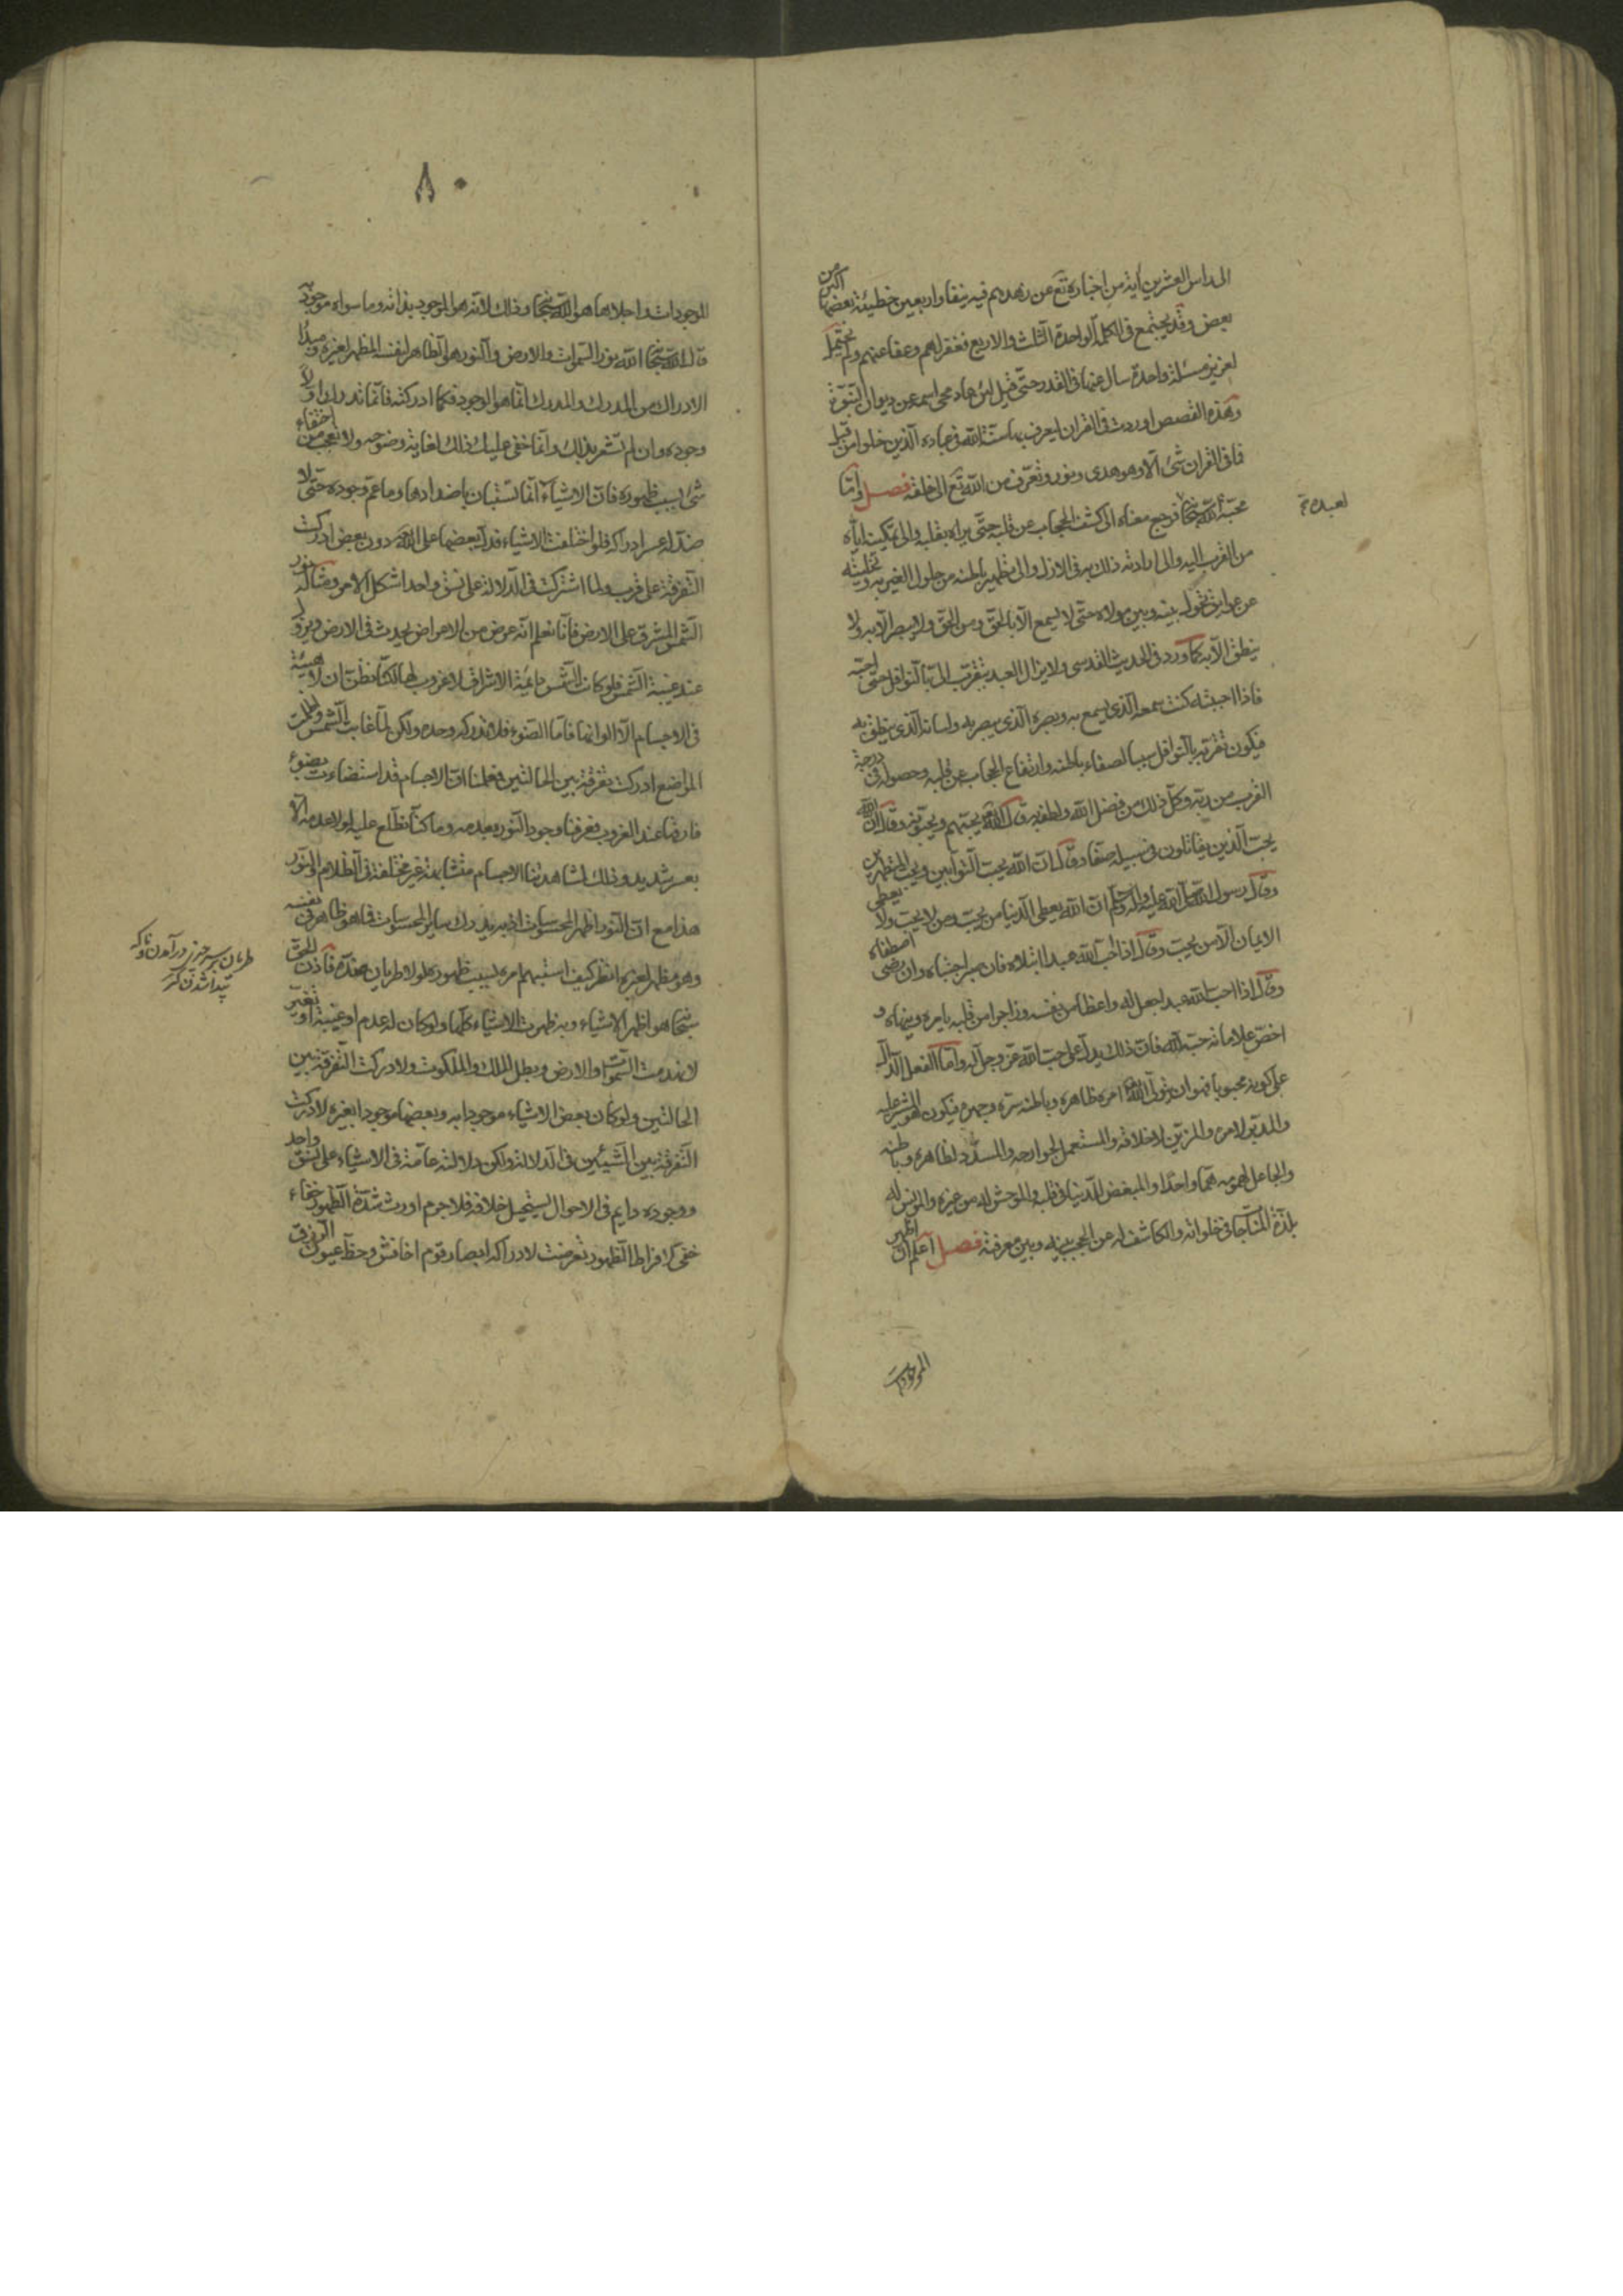 الى راس العشرين اية من اخباره تع عن زهدهم فيه نيفا واربعين خطيئة بعضها اكبر من
بعض وقد يجتمع فى الكلمة الواحدة الثلث والاربع فغفر لهم وعفا عنهم ولم يحتمل
لعزير مسئلة واحدة سال عنها فى القدر حتى قيل لئن عاد محى اسمه عن ديوان النبوة
وهذه القصص اوردت فى القران ليعرف بها سنة الله فى عباده الذين خلوا من قبل
فما فى القران شئ الا وهو هدى ونور وتعرف من الله تع الى خلقه فصل واما
محبة الله سبحا لعبده فيرجع معناه الى كشف الحجاب عن قلبه حتى يراه بقلبه والى تمكينه اياه
من القرب اليه والى ارادته ذلك به فى الازل والى تطهير باطنه من حلول الغير به وتخليته
عن عوايق تحول بينه وبين مولاه حتى لا يسمع الا بالحق ومن الحق ولا يبصر الا به ولا
ينطق الا به كما ورد فى الحديث القدسى ولا يزال العبد يتقرب الى بالنوافل حتى احبه
فاذا احببته كنت سمعه الذى يسمع به وبصره الذى يبصر به ولسانه الذى ينطق به
فيكون تقربه بالنوافل سببا لصفاء باطنه وارتفاع الحجاب عن قلبه وحصوله فى درجة
القرب من ربه وكل ذلك من فضل الله ولطفه به قال الله يحبهم ويحبونه وقال ان الله
يحب الذين يقاتلون فى سبيله صفا وقال ان الله يحب التوابين ويحب المتطهرين
وقال رسول الله صلى الله عليه واله وسلم ان الله يعطى الدنيا من يحب ومن لا يحب ولا يعطى
الايمان الا من يحب وقال اذا احب الله عبدا ابتلاه فان صبر اجتباه وان رضى اصطفاه
وقال اذا احب الله عبدا جعل له واعظا من نفسه وزاجرا من قلبه يامره وينهاه و
اخص علاماته حبه لله فان ذلك يدل على حب الله عز وجل له واما الفعل الدال
على كونه محبوبا فهو ان يتولى الله امره ظاهره وباطنه سره وجهره فيكون هو المشير عليه
والمدبر لامره والمزين لاخلاقه والمستعمل لجوارحه والمسدد لظاهره وباطنه
والجاعل همومه هما واحدا والمبغض للدنيا فى قلبه والموحش له من غيره والمونس له
بلذة المناجاة فى خلواته والكاشف له عن الحجب بينه وبين معرفته فصل اعلم ان اظهر
الموجودات
لعبده
٨٠
الموجودات واجلاها هو الله سبحا وذلك لانه هو الموجود بذاته وما سواه موجود به
قال الله سبحا الله نور السموات والارض والنور هو الظاهر لنفسه المظهر لغيره ومبدأ
الادراك من المدرك والمدرك انما هو الوجود فكلما ادركته فانما تدرك اولا
وجوده وان لم تشعر بذلك وانما خفى عليك ذلك لغاية وضوحه ولا تعجب من اختفاء
شئ بسبب ظهوره فان الاشياء انما تستبان باضدادها وما عم وجوده حتى لا
ضد له عسر ادراكه فلو اختلفت الاشياء فدل بعضها على الله دون بعض ادركت
التفرقة على قرب ولما اشتركت فى الدلالة على نسق واحد اشكل الامر ومثاله نور
الشمس المشرق على الارض فانا نعلم انه عرض من الاعراض يحدث فى الارض ويزول
عند غيبة الشمس فلو كانت الشمس دائمة الاشراق لا غروب لها لكنا نظن ان لا هيئة
فى الاجسام الا الوانها فاما الضوء فلا ندركه وحده ولكن لما غابت الشمس واظلمت
المواضع ادركت تفرقة بين الحالتين فعلمنا ان الاجسام قد استضاءت بضوء
فارقها عند الغروب فعرفنا وجود النور بعدمه وما كنا نطلع عليه لولا عدمه الا
بعسر شديد وذلك لمشاهدتنا الاجسام متشابهة غير مختلفة فى الظلام والنور
هذا مع ان النور اظهر المحسوسات اذ به يدرك ساير المحسوسات فما هو ظاهر فى نفسه
وهو مظهر لغيره انظر كيف استبهم امره بسبب ظهوره لولا طريان ضده فاذن الحق
سبحا هو اظهر الاشياء وبه ظهرت الاشياء كلها ولو كان له عدم او غيبة او تغير
لانهدمت السموات والارض وبطل الملك والملكوت ولادركت التفرقة بين
الحالتين ولو كان بعض الاشياء موجودا به وبعضها موجودا بغيره لادركت
التفرقة بين الشيئين فى الدلالة ولكن دلالته عامة فى الاشياء على نسق واحد
ووجوده دايم فى الاحوال يستحيل خلافه فلا جرم اورث شدة الظهور خفاء
خفى لافراط الظهور تعرضت لادراكه ابصار قوم اخافش وحظ عيون الزرق
طريان
پيدا شدن